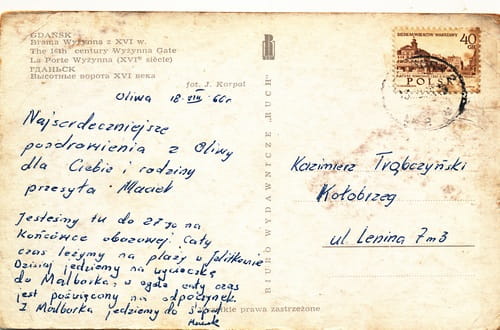 GDAŃSK
Brama Wyżynna z XVI w.
The 16th century Wyżynna Gate
La Porte Wyżynna (XVIe siècle)
ГДАНЬСК
Высотные ворота XVI века
fot. J. Korpal
Oliwa 18.VIII.66r
Najserdeczniejsze
pozdrowienia z Oliwy
dla Ciebie i rodziny
przesyła Maciek
Jesteśmy tu do 27-go na
Końcówce obozowej. Cały
czas leżymy na plaży w Jelitkowie
Dzisiaj jedziemy na wycieczkę
do Malborka, a cały czas
jest poświęcony na odpoczynek.
Z Malborka jedziemy do
Maciek
BIURO WYDAWNICZE „RUCH"
40
GR
POLSKA
Kazimierz Trąbczyński
Kołobrzeg
ul. Lenina 7m3
prawa zastrzeżone